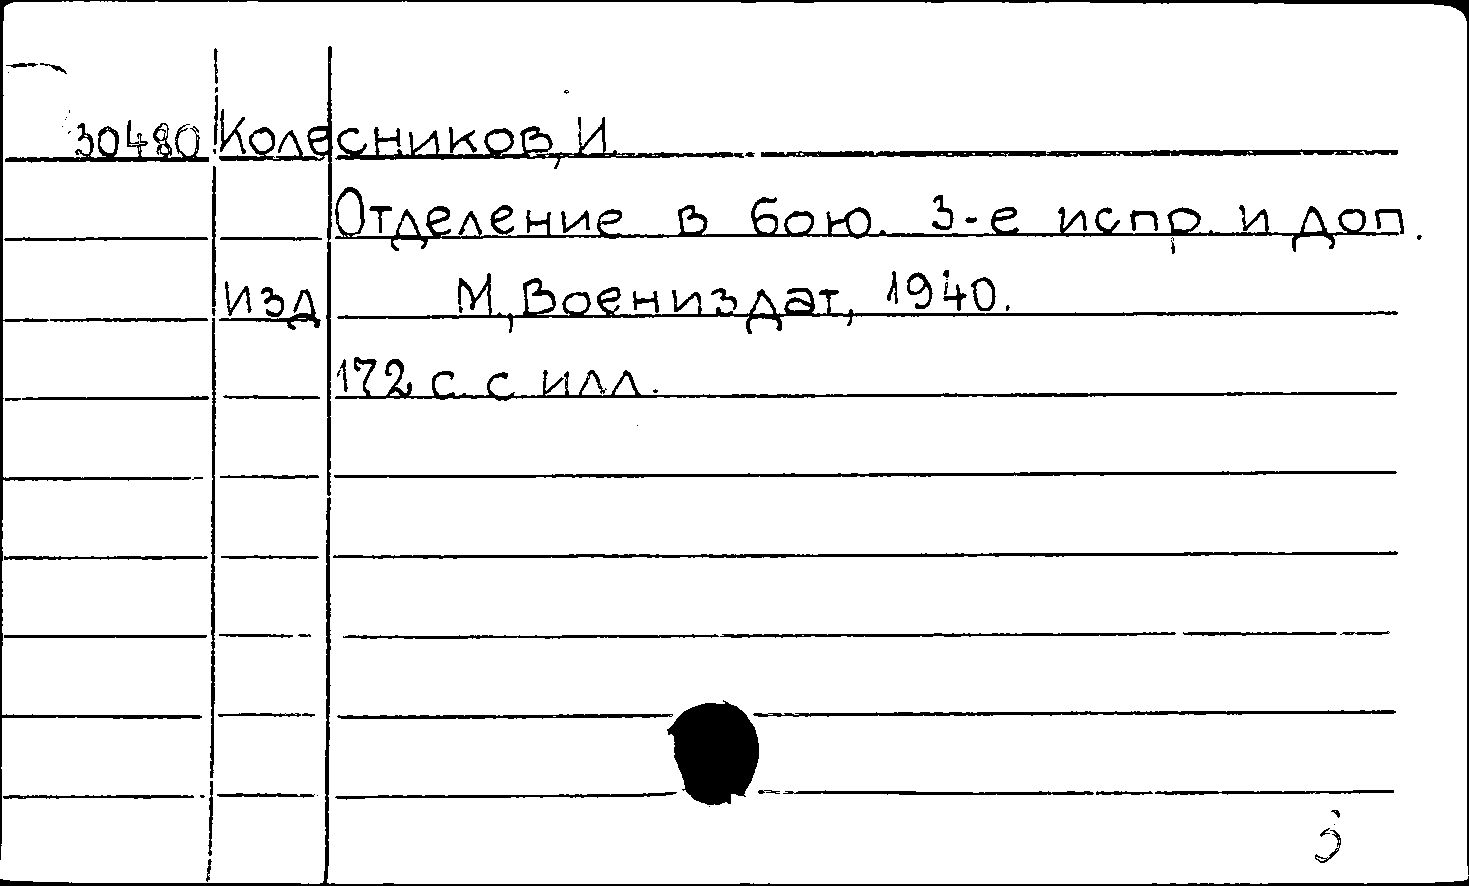 30480 Колесников, И.
Отделение в бою. 3-е испр. и доп.
изд М., Воениздат, 1940.
172 с. с илл.